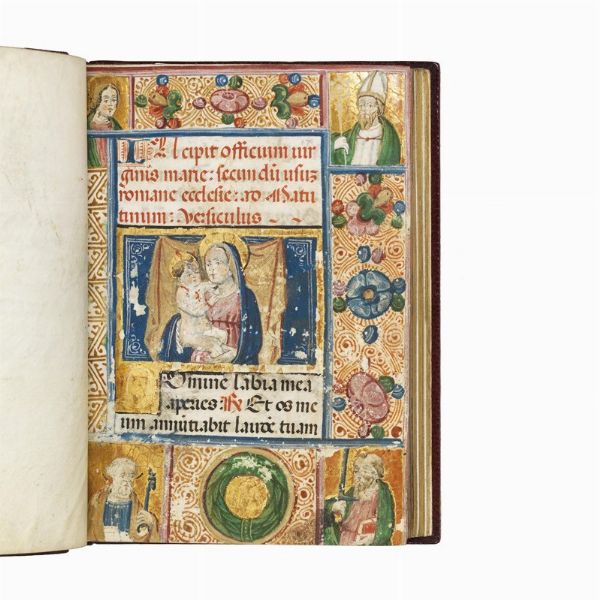 INcipit officium uir
ginis marie: secundū usuz
romane ecclesie: ad Matu
tinum: Versiculus
Domine labia mea
aperies: R Et os me
um annūtiabit laudē tuam